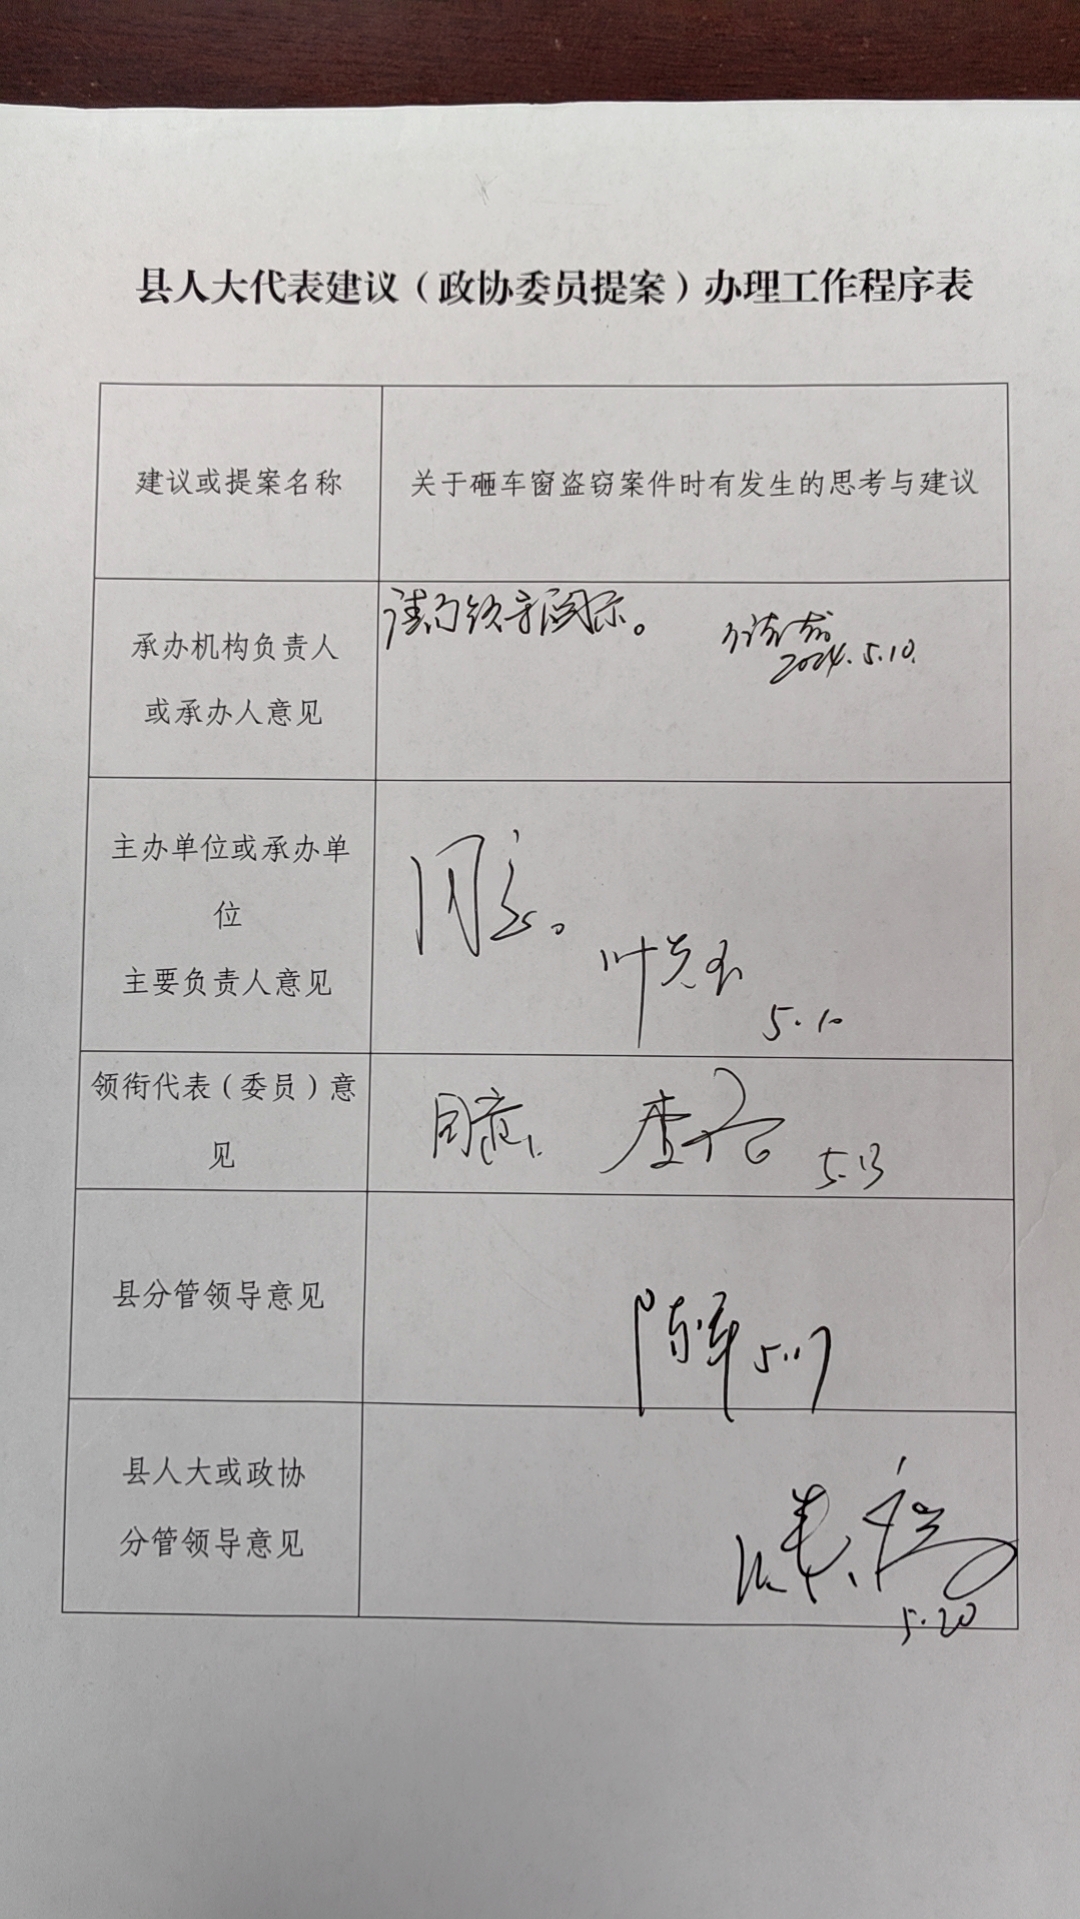 县人大代表建议（政协委员提案）办理工作程序表
建议或提案名称
关于砸车窗盗窃案件时有发生的思考与建议
承办机构负责人
或承办人意见
请局领导阅示。
2024.5.10.
主办单位或承办单
位
主要负责人意见
同意。
5.10
领衔代表（委员）意
见
同意
5.13
县分管领导意见
5.17
县人大或政协
分管领导意见
5.20